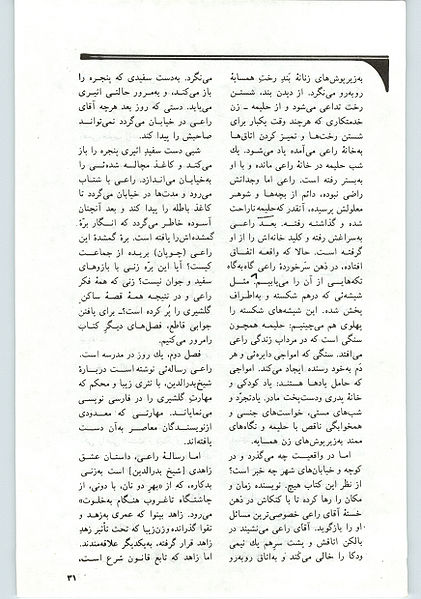 به‌زیرپوش‌های زنانهٔ بند رخت همسایهٔ
روبه‌رو می‌نگرد. از دیدن بند، شستن
رخت تداعی می‌شود و از حلیمه ـ زن
خدمتکاری که هرچند وقت یکبار برای
شستن رخت‌ها و تمیز کردن اتاق‌ها
به‌خانهٔ راعی می‌آمده یاد می‌شود. یك
شب حلیمه در خانهٔ راعی مانده و با او
به‌بستر رفته است. راعی اما وجدانش
راضی نبوده، دائم از بچه‌ها و شوهر
معلولش پرسیده، آنقدر که حلیمه ناراحت
شده و گذاشته رفته. بعد راعی
به‌سراغش رفته و کلید خانه‌اش را از او
گرفته است. حالا که واقعه اتفاق
افتاده، در ذهن سرخوردهٔ راعی گاه‌به‌گاه
تکه‌هایی از آن را می‌یابیم. مثل
شیشه‌ئی که درهم شکسته و به‌اطراف
پخش شده. این شیشه‌های شکسته را
پهلوی هم می‌چینیم: حلیمه همچون
سنگی است که در مرداب زندگی راعی
می‌افتد. سنگی که امواجی دایره‌ئی و هر
دم به‌خود رسنده ایجاد می‌کند. امواجی
که حامل یادها هستند: یاد کودکی و
خانهٔ پدری ودست‌پخت مادر. یادتجرد و
شب‌های مستی، خواست‌های جنسی و
همخوابگی ناقص با حلیمه و نگاه‌های
ممتد به‌زیرپوش‌های زن همسایه.
اما در واقعیت چه می‌گذرد و در
کوچه و خیابان‌های شهر چه خبر است؟
از نظر این کتاب هیچ. نویسنده زمان و
مکان را رها کرده تا با کنکاش در ذهن
خستهٔ آقای راعی خصوصی‌ترین مسائل
او را بازگوید. آقای راعی می‌نشیند در
بالکن اتاقش و پشت سرهم یك نیمی
ودکا را خالی می‌کند و به‌اتاق روبه‌رو
می‌نگرد. به‌دست سفیدی که پنجره را
باز می‌کند، و به‌مرور حالتی اثیری
می‌یابد. دستی که روز بعد هرچه آقای
راعی در خیابان می‌گردد نمی‌تواند
صاحبش را پیدا کند.
شبی دست سفید اثیری پنجره را باز
می‌کند و کاغذ مچاله شده‌ئی را
به‌خیابان می‌اندازد. راعی با شتاب
می‌رود و مدت‌ها در خیابان می‌گردد تا
کاغذ باطله را پیدا کند و بعد آنچنان
آسوده خاطر می‌گردد که انگار برهٔ
گمشده‌اش رایافته است. برهٔ گمشدهٔ این
راعی (چوپان) بریده از جماعت
کیست؟ آیا این برّه زنی با بازوهای
سفید و جوان نیست؟ زنی که همهٔ فکر
راعی و در نتیجه همهٔ قصهٔ ساکن
گلشیری را پُر کرده است؟ـ برای یافتن
جوابی قاطع، فصل‌های دیگر کتاب
رامرور می‌کنیم.
فصل دوم، یك روز در مدرسه است.
راعی رساله‌ئی نوشته است دربارهٔ
شیخ‌بدرالدین، با نثری زیبا و محکم که
مهارت گلشیری را در فارسی نویسی
می‌نمایاند. مهارتی که معدودی
ازنویسندگان معاصر به‌آن دست
یافته‌اند.
اما رسالهٔ راعی، داستان عشق
زاهدی [شیخ بدرالدین] است به‌زنی
بدکاره، که از «بهر دو نان، با دونی، از
چاشتگاه تاغروب هنگام به‌خلوت»
می‌رود. زاهد بینوا که عمری به‌زهد و
تقوا گذرانده وزن‌زیبا که تحت تأثیر زهد
زاهد قرار گرفته، به‌یکدیگر علاقه‌مندند.
اما زاهد که تابع قانون شرع است،
۳۱